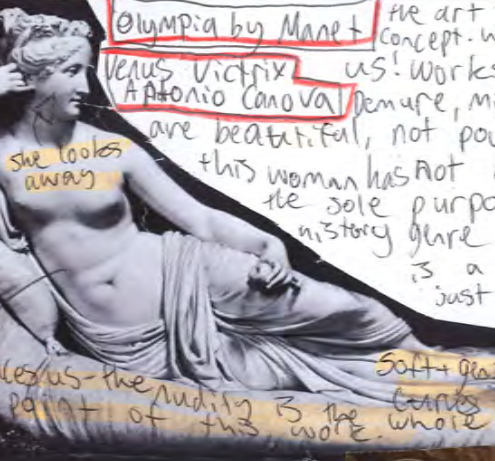 Olympia by Manet
the art
concept. w
Venus Victrix
us! works
Antonio Canova
Demure, m
are beautiful, not po
she looks
away
this woman has not
the sole purpo
history genre
is a
just
soft + gen
curves
ces us - the nudity is the whole
point of this work.